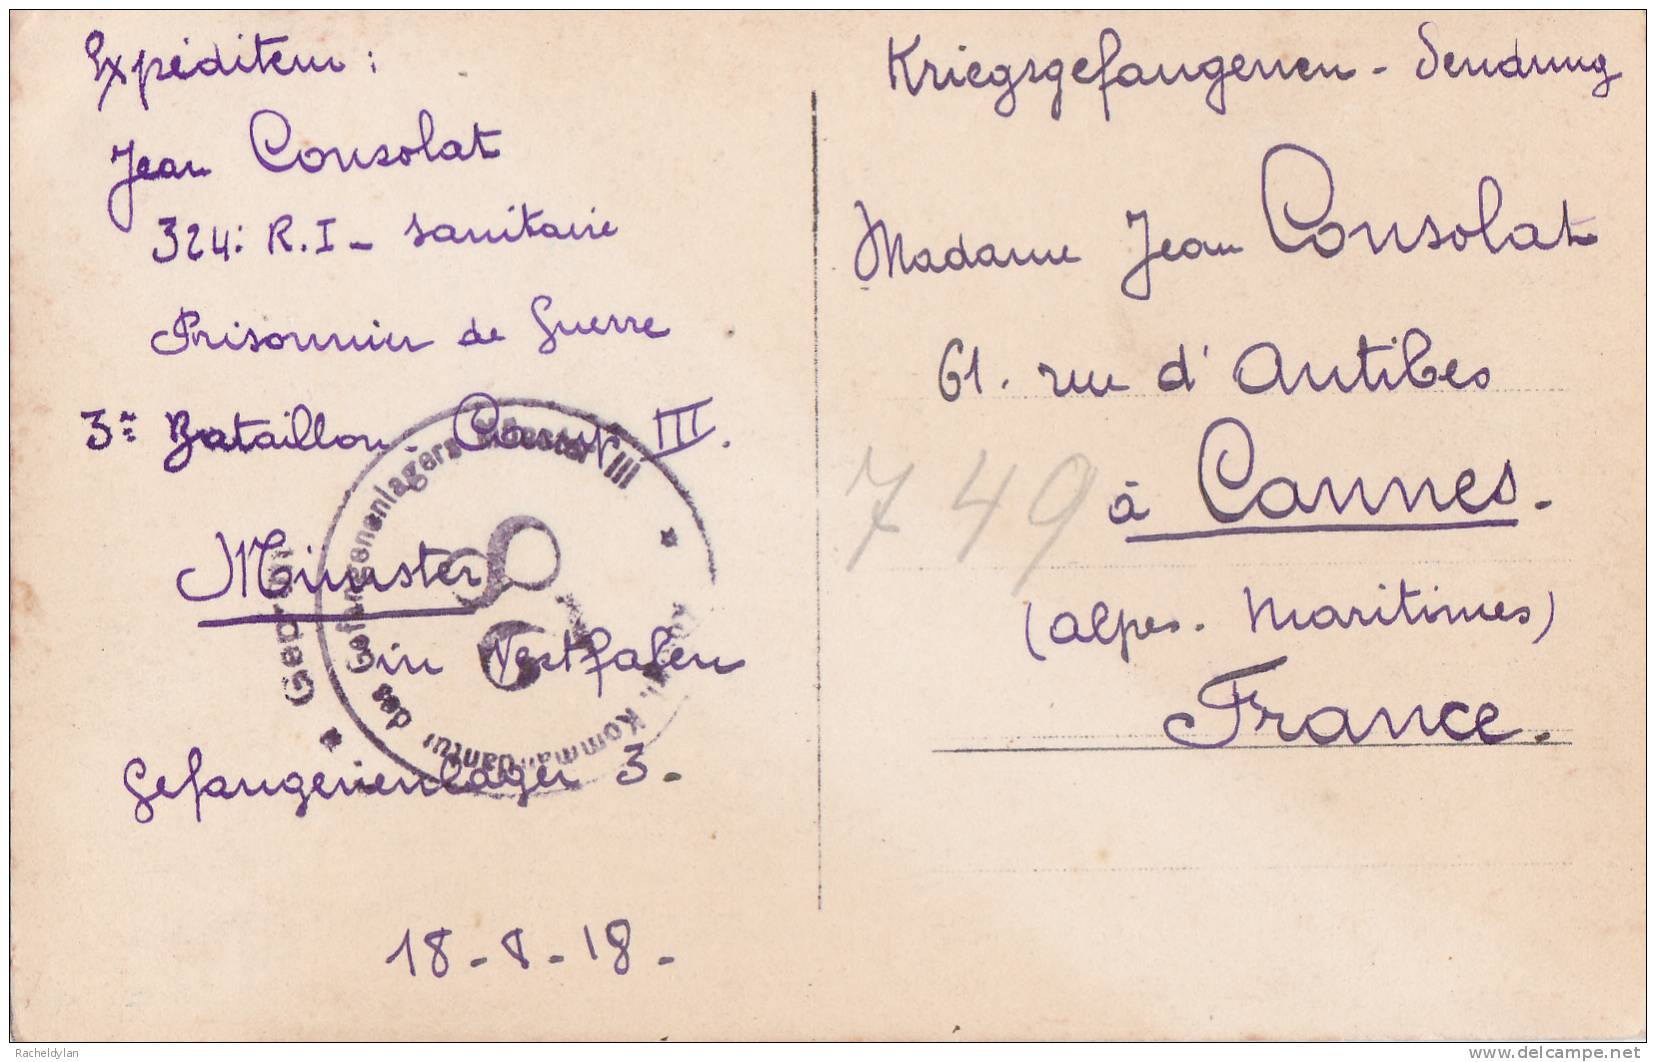 Expéditeur :
Jean Consolat
324: R.I - sanitaire
Prisonnier de Guerre
3e Bataillon. Camp III.
Münster
in Westfalen
Gefangenenlager 3.
18 - 8 - 18 -
Kriegsgefangenen - Sendung
Madame Jean Consolat
61. rue d'Antibes
à Cannes.
(Alpes. Maritimes)
France.
749
Kommandantur des Gefangenenlagers Münster III
Racheldylan
www.delcampe.net